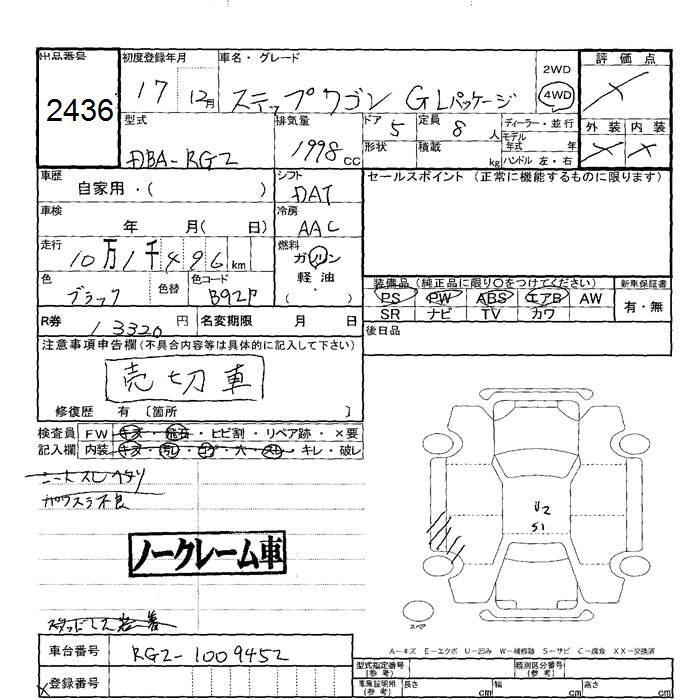 出品番号 初度登録年月 車名・グレード 評価点
2436 17 12月 ステップワゴン GLパッケージ 2WD 4WD
型式 排気量 ドア 5 定員 8人 ディーラー・並行 外装 内装
DBA-RG2 1998cc 形状 積載 kg モデル年式 年 ハンドル 左・右
車歴 シフト セールスポイント (正常に機能するものに限ります)
自家用・( ) DAT
車検 冷房
年 月( 日) AAC
走行 燃料
10万1千496km ガソリン
色 色替 色コード 軽油
ブラック B92P ・( )
装備品(純正品に限り○をつけてください) 新車保証書
PS PW ABS エアB AW 有・無
SR ナビ TV カワ
R券 13320円 名変期限 月 日 後日品
注意事項申告欄(不具合内容等は具体的に記入して下さい)
売切車
修復歴 有 〔箇所 〕
検査員 FW キズ・飛石・ヒビ割・リペア跡・×要
記入欄 内装 キズ・汚れ・コゲ・穴・スレ・キレ・破レ
シートスレヘタリ
U2
S1
ノークレーム車
スペア
A-キズ E-エクボ U-凹み W-補修跡 S-サビ C-腐食 XX-交換済
車台番号 RG2-1009452
登録番号
型式指定番号(参考) 類別区分番号(参考)
車庫証明用(参考) 長さ cm 幅 cm 高さ cm